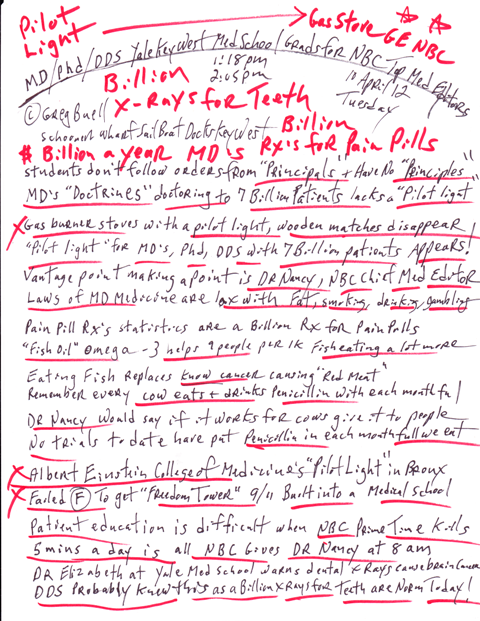 Pilot Light → Gas Stove GE NBC
MD/Phd/DDS Yale Key West Med School Grads for NBC Top Med Editors
Billion 1:18pm
2:05pm
10 April 12
Tuesday
© Greg Buell X-Rays for Teeth
schooner wharf Sail Boat Docks Key West Billion
$ Billion a year MD's Rx's for Pain Pills
students don't follow orders from "Principals" + Have No "Principles"
MD's "Doctrines" doctoring to 7 Billion Patients lacks a "Pilot light"
X Gas burner stoves with a pilot light, wooden matches disappear/
"Pilot light" for MD's, Phd, DDS with 7 Billion patients Appears!
Vantage point making a point is DR Nancy, NBC Chief Med Editor
Laws of MD Medicine are lax with Fat, smoking, drinking, gambling
Pain Pill Rx's statistics are a Billion Rx for Pain Pills
"Fish Oil" Omega-3 helps 9 people per 1K Fish eating a lot more
Eating Fish Replaces know cancer causing "Red Meat"
Remember every cow eats + drinks Penicillin with each mouthful
DR Nancy would say if it works for cows give it to people
No trials to date have put Penicillin in each mouthfull we eat
X Albert Einstein College of Medicine's "Pilot Light" in Bronx
X Failed F To get "Freedom Tower" 9/11 Built into a Medical School
Patient education is difficult when NBC Prime Time Kills
5 mins a day is all NBC Gives DR Nancy at 8 am
DR Elizabeth at Yale Med School warns dental x Rays cause brain Cancer
DDS Probably knew this as a Billion X Rays for Teeth are Norm Today!